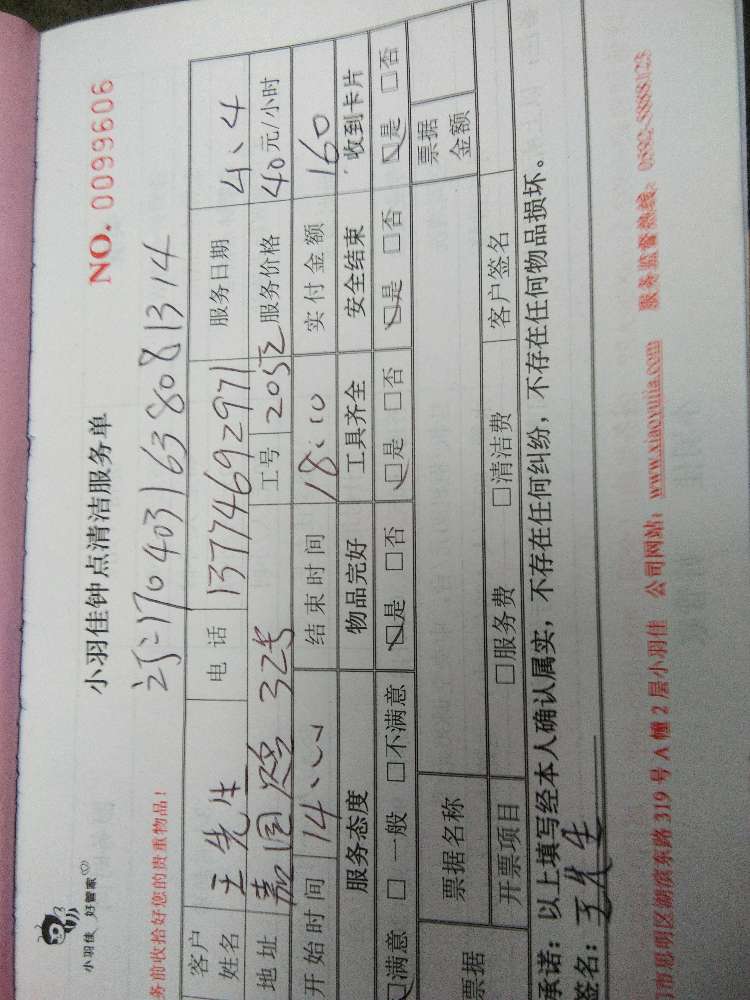 小羽佳 好管家
小羽佳钟点清洁服务单
NO. 0099606
170403163808131 4
务前收拾好您的贵重物品！
客户姓名 王先生 电话 13774692971 服务日期 4、4
地址 嘉园 325 工号 服务价格 40元/小时
开始时间 14: 结束时间 18:10 实付金额 160
服务态度 物品完好 工具齐全 安全结束 收到卡片
满意 □一般 □不满意 □是 □否 □是 □否 □是 □否 □是 □否
票据 票据名称 票据金额
开票项目 □服务费 □清洁费 客户签名
承诺：以上填写经本人确认属实，不存在任何纠纷，不存在任何物品损坏。
签名：王先生
市思明区湖滨东路 319 号 A 幢 2 层小羽佳 公司网站：www.xiaoyujia.com 服务监督热线：0592-5888123